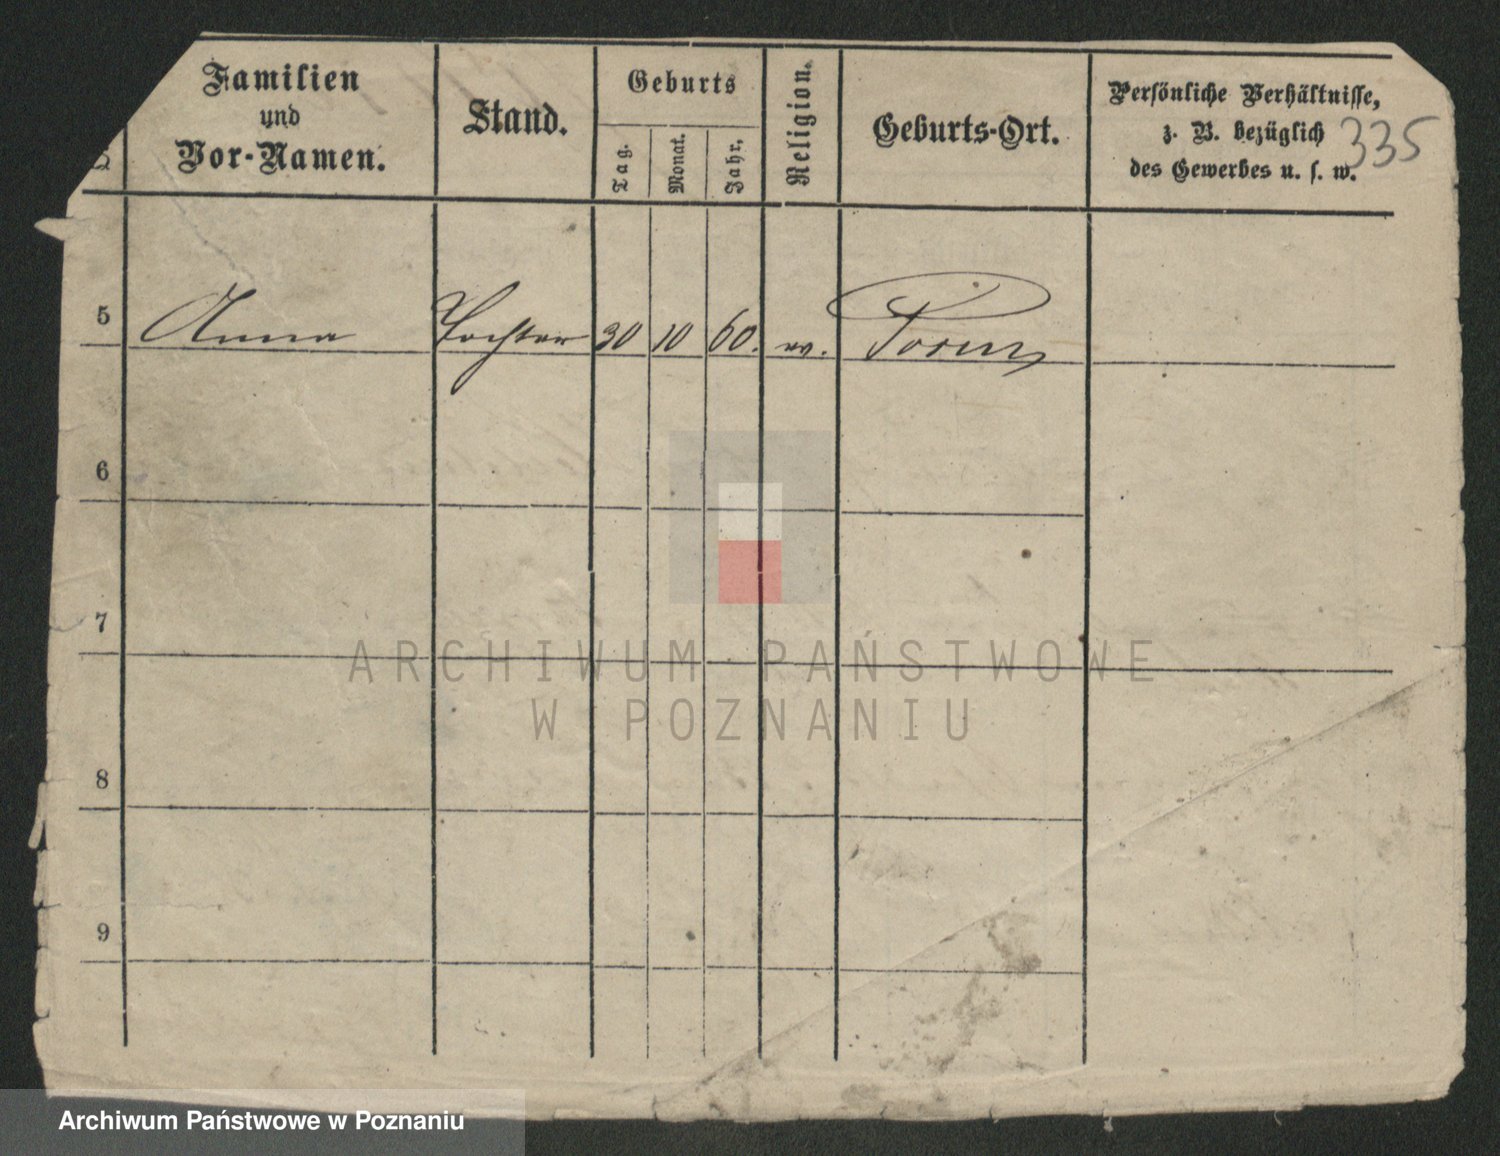 Familien
und
Vor-Namen.
Stand.
Geburts
Tag.
Monat.
Jahr.
Religion.
Geburts-Ort.
Persönliche Verhältnisse,
z. B. bezüglich
des Gewerbes u. s. w.
335
5 Anna Tochter 30 10 60.
6
7
8
9
ARCHIWUM PAŃSTWOWE
W POZNANIU
Archiwum Państwowe w Poznaniu